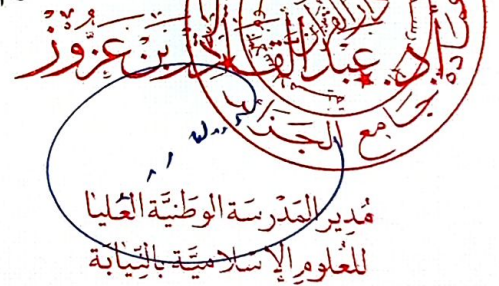 أ.د. عبد القادر بن عزوز
جامع الجزائر
مُدِير المَدْرسَة الوَطنيَّة العُليا
للعُلومِ الإِسْلاميَّة بالنِّيابَة